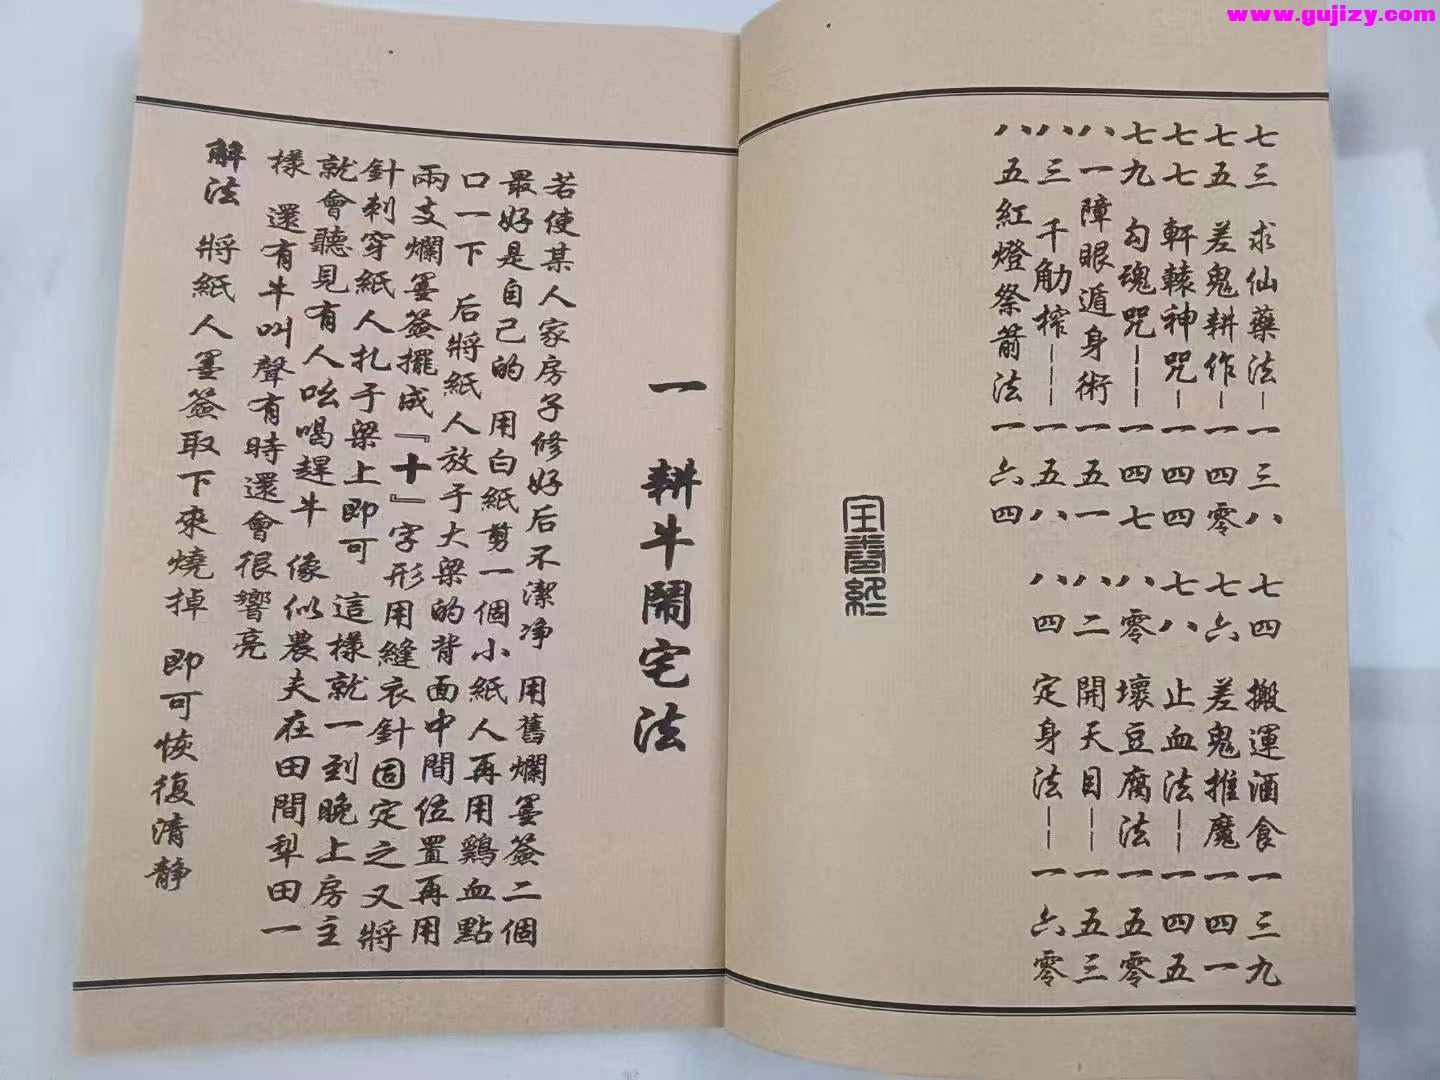 www.gujizy.com
七三 求仙藥法－一三八 七四 搬運酒食一三九
七五 差鬼耕作－一四零 七六 差鬼推魔一四一
七七 軒轅神咒－一四四 七八 止血法－－一四五
七九 勾魂咒－－一四七 八零 壞豆腐法一五零
八一障眼遁身術一五一 八二 開天目－－一五三
八三 千觔榨－－一五八 八四 定身法－－一六零
八五紅燈祭箭法一六四
一 耕牛鬧宅法
若使某人家房子修好后不潔净 用舊爛墨簽二個
最好是自己的 用白紙剪一個小紙人再用鷄血點
口一下 后將紙人放于大梁的背面中間位置再用
兩支爛墨簽擺成『十』字形用縫衣針固定之又將
針刺穿紙人扎于梁上即可 這樣就一到晚上房主
就會聽見有人吆喝趕牛 像似農夫在田間犁田一
樣 還有牛叫聲有時還會很響亮
解法 將紙人墨簽取下來燒掉 即可恢復清静